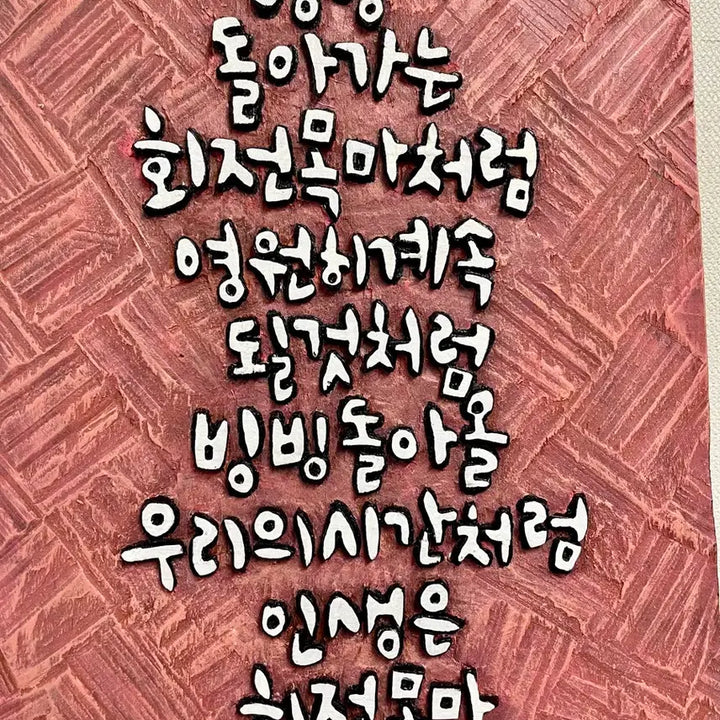 돌아가는
회전목마처럼
영원히계속
될것처럼
빙빙돌아올
우리의시간처럼
인생은
회전목마